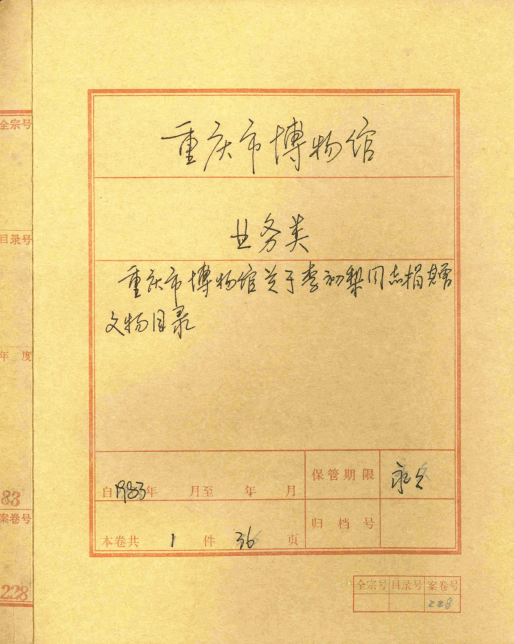 全宗号
目录号
年 度
83
案卷号
228
重庆市博物馆
业务类
重庆市博物馆关于李初梨同志捐赠
文物目录
自1983年 月至 年 月
保管期限 永久
本卷共 1 件 36 页
归档号
全宗号 目录号 案卷号
228